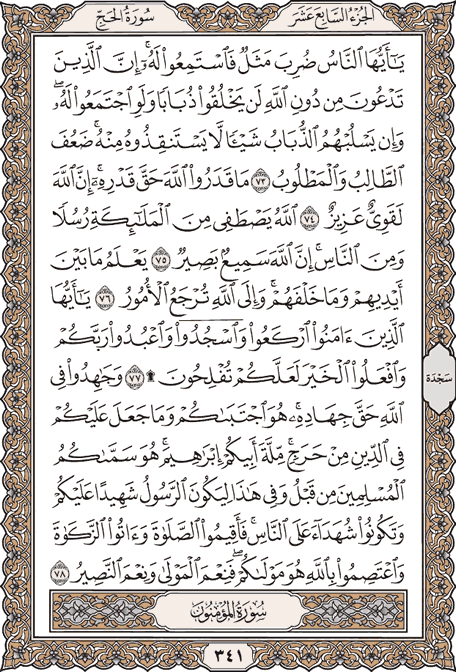 سُورَةُ الحَجّ
الجُزْءُ السَّابِعَ عَشَرَ
يَٰٓأَيُّهَا ٱلنَّاسُ ضُرِبَ مَثَلٌ فَٱسْتَمِعُوا۟ لَهُۥٓ ۚ إِنَّ ٱلَّذِينَ
تَدْعُونَ مِن دُونِ ٱللَّهِ لَن يَخْلُقُوا۟ ذُبَابًا وَلَوِ ٱجْتَمَعُوا۟ لَهُۥ ۖ
وَإِن يَسْلُبْهُمُ ٱلذُّبَابُ شَيْـًٔا لَّا يَسْتَنقِذُوهُ مِنْهُ ۚ ضَعُفَ
ٱلطَّالِبُ وَٱلْمَطْلُوبُ ٧٣ مَا قَدَرُوا۟ ٱللَّهَ حَقَّ قَدْرِهِۦٓ ۗ إِنَّ ٱللَّهَ
لَقَوِىٌّ عَزِيزٌ ٧٤ ٱللَّهُ يَصْطَفِى مِنَ ٱلْمَلَٰٓئِكَةِ رُسُلًا
وَمِنَ ٱلنَّاسِ ۚ إِنَّ ٱللَّهَ سَمِيعٌۢ بَصِيرٌ ٧٥ يَعْلَمُ مَا بَيْنَ
أَيْدِيهِمْ وَمَا خَلْفَهُمْ ۗ وَإِلَى ٱللَّهِ تُرْجَعُ ٱلْأُمُورُ ٧٦ يَٰٓأَيُّهَا
ٱلَّذِينَ ءَامَنُوا۟ ٱرْكَعُوا۟ وَٱسْجُدُوا۟ وَٱعْبُدُوا۟ رَبَّكُمْ
وَٱفْعَلُوا۟ ٱلْخَيْرَ لَعَلَّكُمْ تُفْلِحُونَ ۩ ٧٧ وَجَٰهِدُوا۟ فِى
سَجْدَة
ٱللَّهِ حَقَّ جِهَادِهِۦ ۚ هُوَ ٱجْتَبَىٰكُمْ وَمَا جَعَلَ عَلَيْكُمْ
فِى ٱلدِّينِ مِنْ حَرَجٍ ۚ مِّلَّةَ أَبِيكُمْ إِبْرَٰهِيمَ ۚ هُوَ سَمَّىٰكُمُ
ٱلْمُسْلِمِينَ مِن قَبْلُ وَفِى هَٰذَا لِيَكُونَ ٱلرَّسُولُ شَهِيدًا عَلَيْكُمْ
وَتَكُونُوا۟ شُهَدَآءَ عَلَى ٱلنَّاسِ ۚ فَأَقِيمُوا۟ ٱلصَّلَوٰةَ وَءَاتُوا۟ ٱلزَّكَوٰةَ
وَٱعْتَصِمُوا۟ بِٱللَّهِ هُوَ مَوْلَىٰكُمْ ۖ فَنِعْمَ ٱلْمَوْلَىٰ وَنِعْمَ ٱلنَّصِيرُ ٧٨
سُورَةُ المُؤْمِنُون
٣٤١